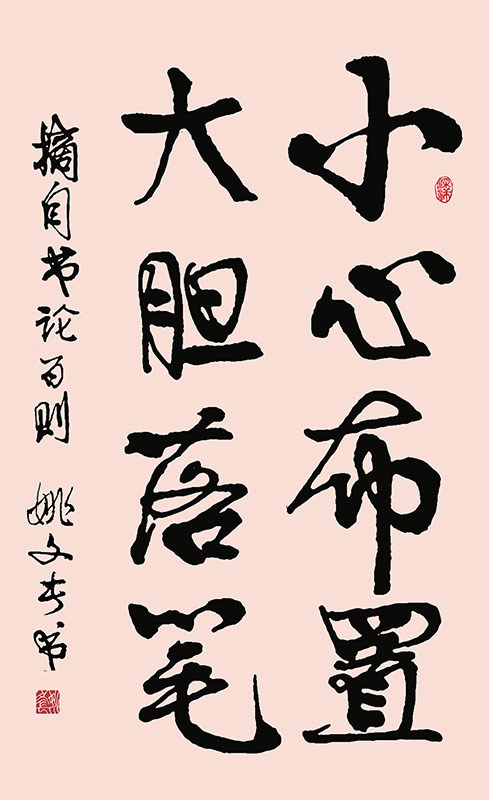 小心布置
大胆落笔
摘自书论百则 姚文奎书